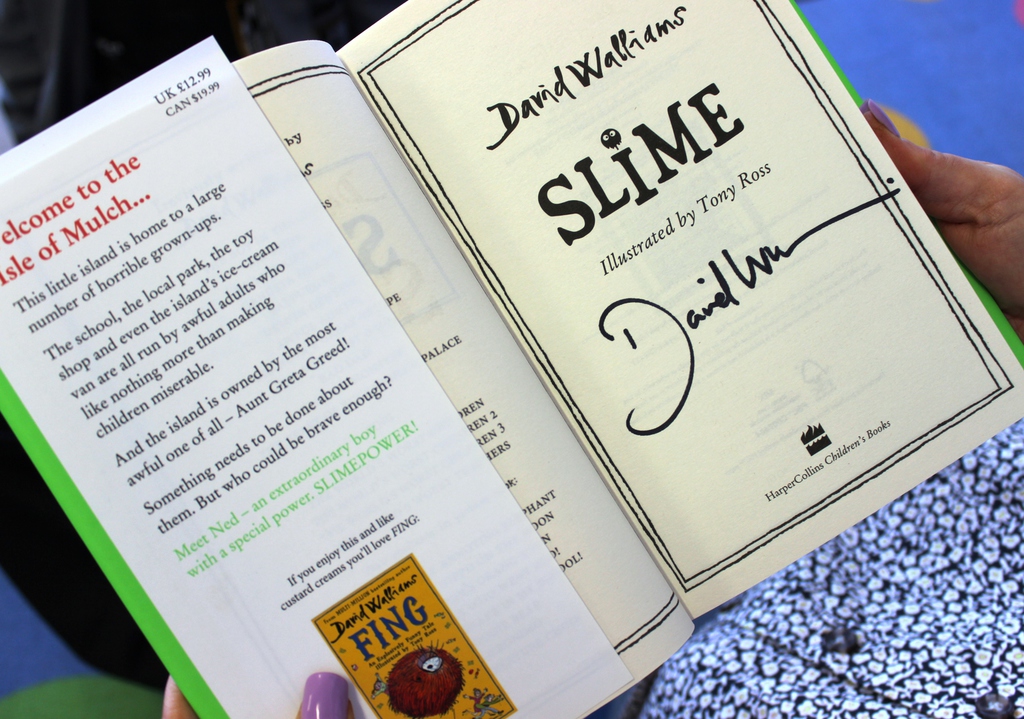 UK £12.99
CAN $19.99
elcome to the
Isle of Mulch...
This little island is home to a large
number of horrible grown-ups.
The school, the local park, the toy
shop and even the island's ice-cream
van are all run by awful adults who
like nothing more than making
children miserable.
And the island is owned by the most
awful one of all – Aunt Greta Greed!
Something needs to be done about
them. But who could be brave enough?
Meet Ned – an extraordinary boy
with a special power. SLIMEPOWER!
If you enjoy this and like
custard creams you'll love FING:
from MULTI-MILLION bestselling author
David Walliams
FING
Illustrated by Tony Ross
by
PE
PALACE
REN
REN 2
REN 3
HERS
PHANT
DON
ON
O!
OOL!
David Walliams
SLIME
Illustrated by Tony Ross
David
HarperCollins Children's Books